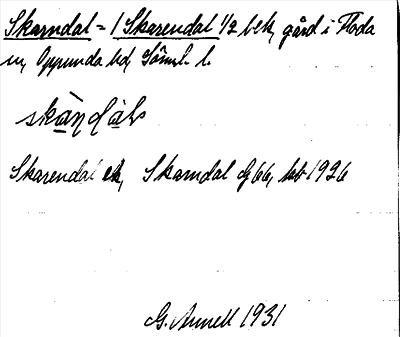 Skarndal = / Skarendal 1/2 bek, gård i Floda
sn, Oppunda hd, Söml. l.
skàṇḍàḷ
Skarendal ek, Skarndal Gs 66, kb 1926
G. Annell 1931